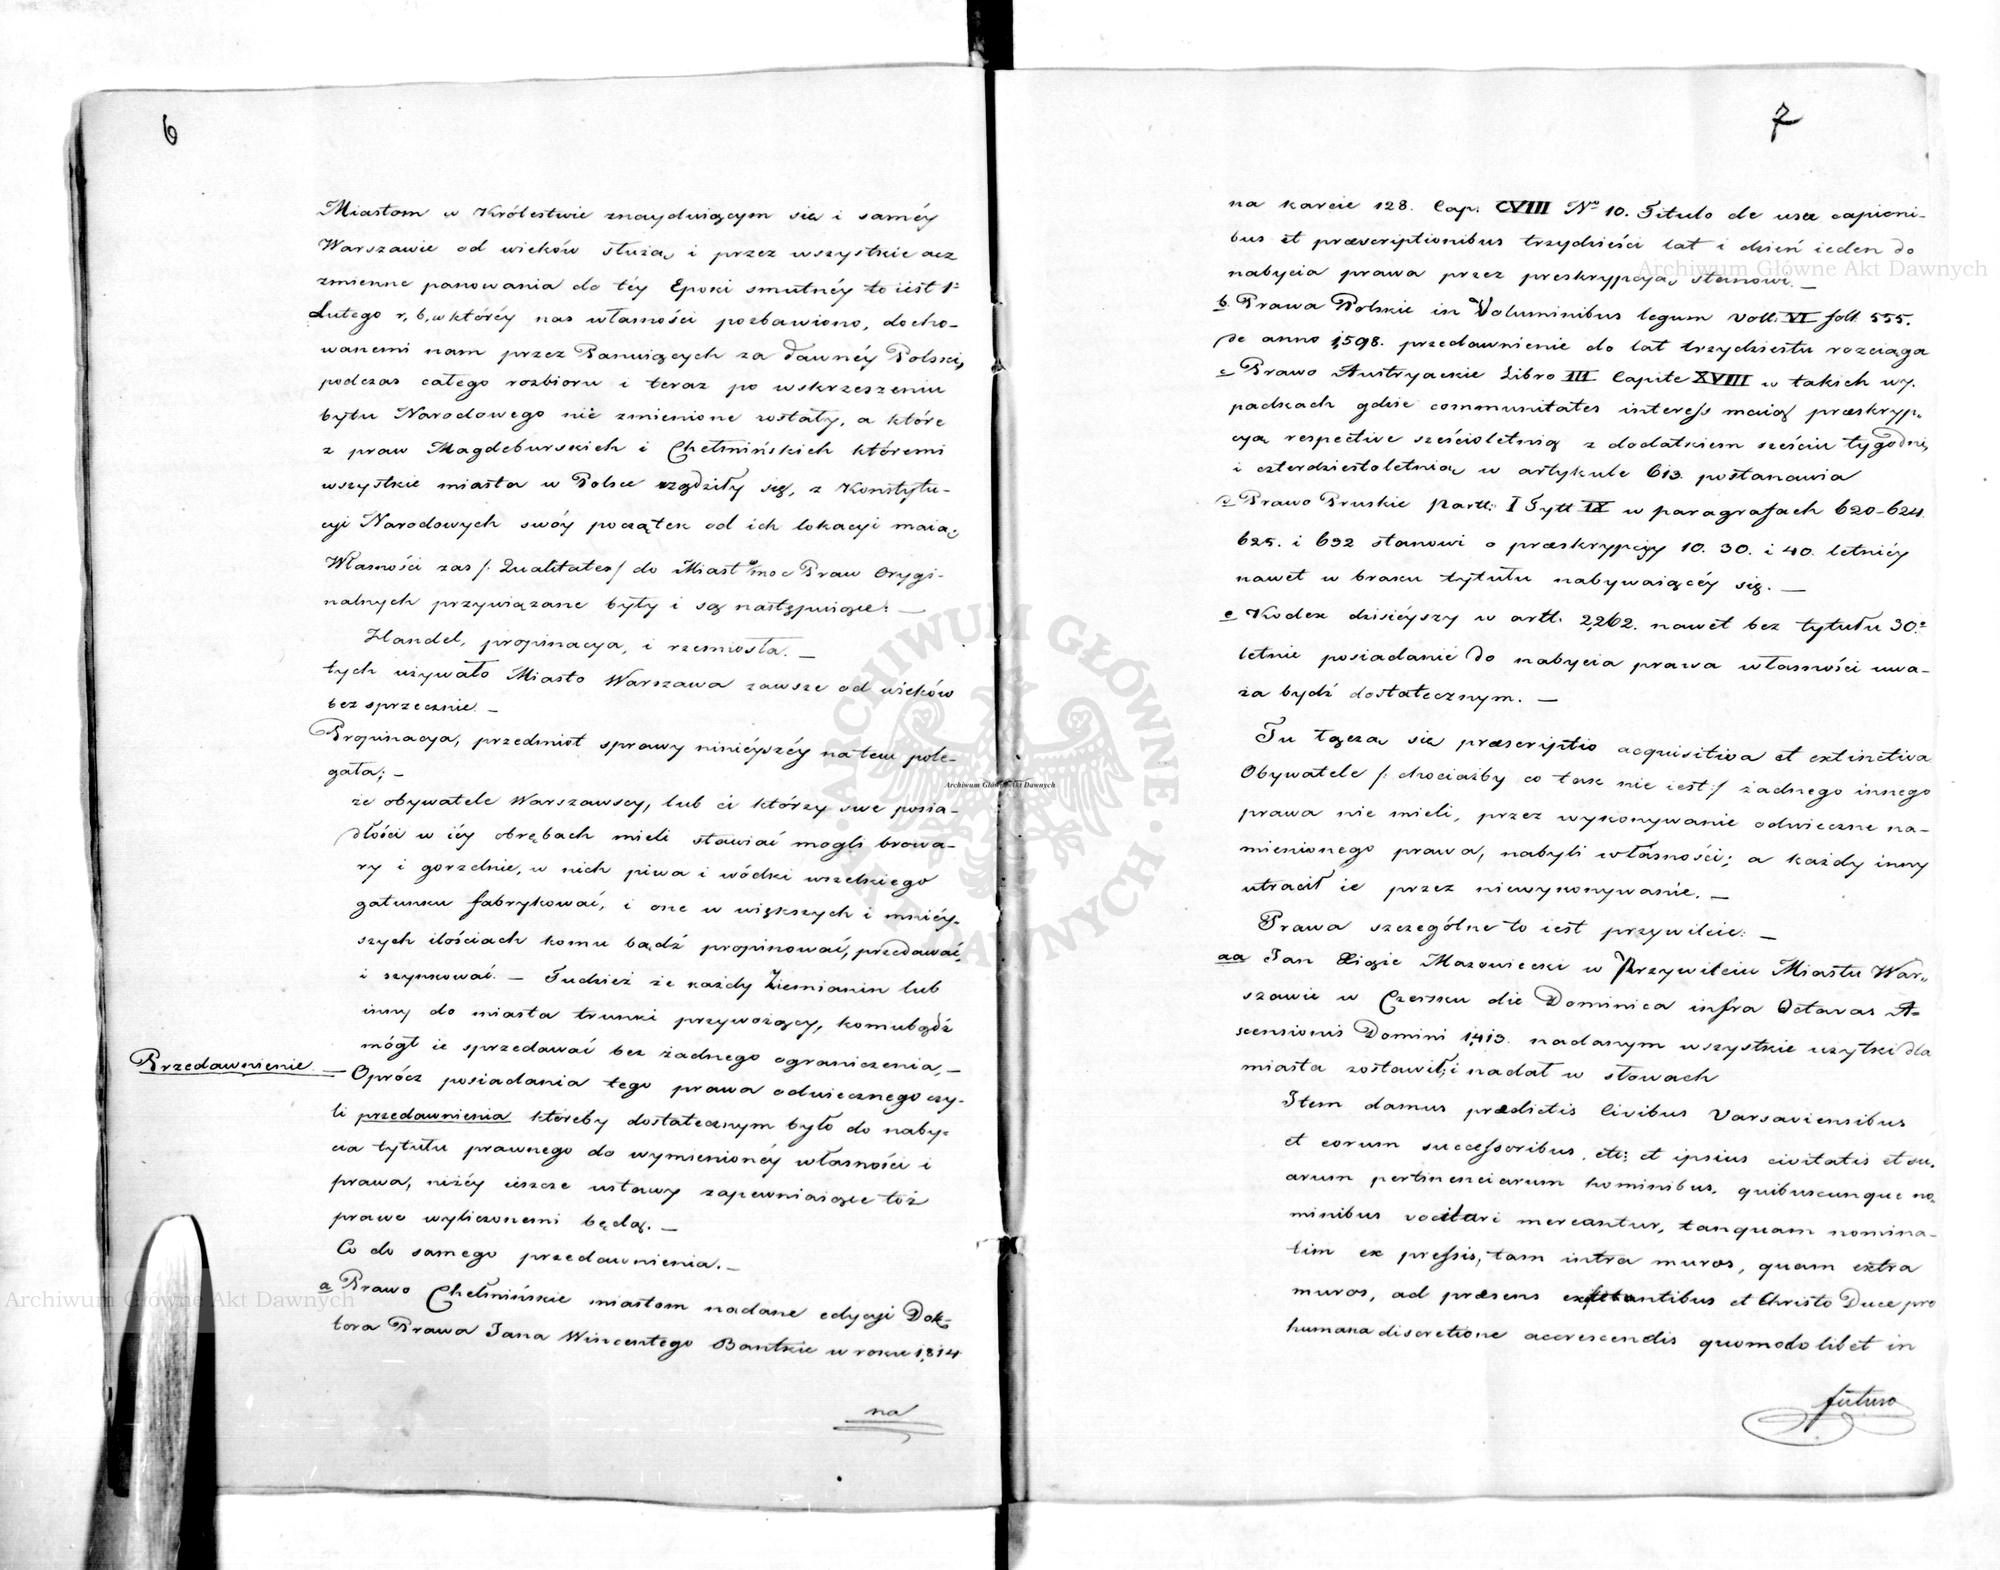 6
Miastom w Królestwie znayduiącym się i saméy
Warszawie od wieków służą, i przez wszystkie acz
zmienne panowania do téy Epoki smutnéy to iest 1º
Lutego r. b. w któréy nas własności pozbawiono, docho-
wanemi nam przez Panuiących za dawnéy Polski,
podczas całego rozbioru i teraz po wskrzeszeniu
bytu Narodowego nie zmienione zostały, a które
z praw Magdeburskich i Chełmińskich któremi
wszystkie miasta w Polsce rządziły się, z Konstytu-
cyi Narodowych swóy początek od ich lokacyi maią.
Własności zas /: Qualitates/ do Miast w moc Praw Orygi-
nalnych przywiązane były i są następuiące: —
Handel, propinacya, i rzemiosła. —
tych używało Miasto Warszawa zawsze od wieków
bez sprzecznie. —
Propinacya, przedmiot sprawy ninieyszéy na tem pole-
gała; —
że obywatele Warszawscy, lub ci którzy swe posia-
dłości w iéy obrębach mieli stawiać mogli browa-
ry i gorzelnie, w nich piwa i wódki wszelkiego
gatunku fabrykować, i one w większych i mniéy-
szych ilościach komu bądź propinować, przedawać,
i szynkować. — Tudzież że każdy Ziemianin lub
inny do miasta trunki przywożący, komubądź
mógł ie sprzedawać bez żadnego ograniczenia, —
Przedawnienie. — Oprócz posiadania tego prawa odwiecznego czy-
li przedawnienia któreby dostatecznym było do naby-
cia tytułu prawnego do wymienionéy własności i
prawa, niżéy ieszcze ustawy zapewniaiące toż
prawo wyliczonemi będą. —
Co do samego przedawnienia. —
a Prawo Chełmińskie miastom nadane edycyi Dok-
tora Prawa Jana Wincentego Bantkie w roku 1814
na
7
na karcie 128. Cap. CVIII No 10. Titulo de usu capioni-
bus et præscriptionibus trzydzieści lat i dzień ieden do
nabycia prawa przez preskrypcyą stanowi. —
b. Prawa Polskie in Voluminibus legum Voll: VI foll 555.
de anno 1598. przedawnienie do lat trzydziestu rozciąga
c Prawo Austryackie Libro III Capite XVIII w takich wy-
padkach gdzie communitates interess maią præskryp-
cyą respective sześcioletnią z dodatkiem sześciu tygodni,
i czterdziestoletnią w artykule 613. postanawia
d Prawo Pruskie Partt: I Tytt IX w paragrafach 620-624.
625. i 632 stanowi o præskrypcyy 10. 30. i 40. letniéy
nawet w braku tytułu nabywaiącéy się. —
e Kodex dzisiéyszy w artt. 2262. nawet bez tytułu 30.º
letnie posiadanie do nabycia prawa własności uwa-
ża bydź dostatecznym. —
Tu łączą się præscriptio acquisitiva et extinctiva
Obywatele /: chociażby co tak nie iest :/ żadnego innego
prawa nie mieli, przez wykonywanie odwieczne na-
mienionego prawa, nabyli własności; a każdy inny
utracił ie przez niewykonywanie. —
Prawa szczególne to iest przywileie: —
aa Jan Xiąże Mazowiecki w Przywileiu Miastu War-
szawie w Czersku die Dominica infra Octavas A-
scensionis Domini 1413. nadanym wszystkie użytki dla
miasta zostawił, i nadał w słowach
Item damus prædictis Civibus Varsaviensibus
et eorum successoribus, etc; et ipsius civitatis et su-
arum pertinenciarum hominibus, quibuscunque no-
minibus vocitari mereantur, tanquam nomina-
tim ex pressis, tam intra muros, quam extra
muros, ad præsens extantibus et Christo Duce pro
humana discretione accrescendis quomodolibet in
futuro
Archiwum Główne Akt Dawnych
Archiwum Główne Akt Dawnych
Archiwum Główne Akt Dawnych
ARCHIWUM GŁÓWNE AKT DAWNYCH